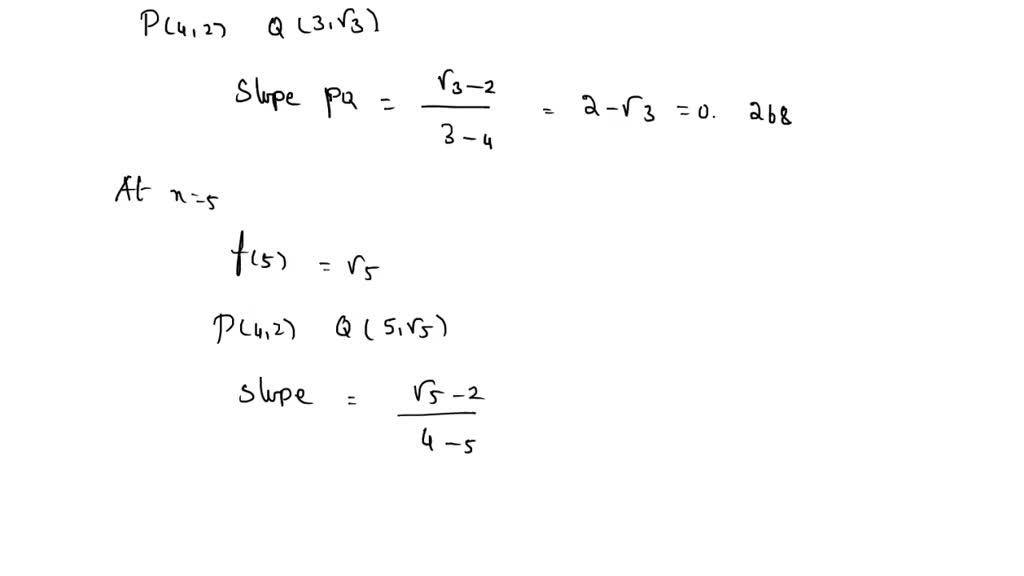 P(4,2) Q(3,√3)
Slope PQ = √3-2 / 3-4 = 2-√3 = 0. 268
At x=5
f(5) = √5
P(4,2) Q(5,√5)
Slope = √5-2 / 4-5